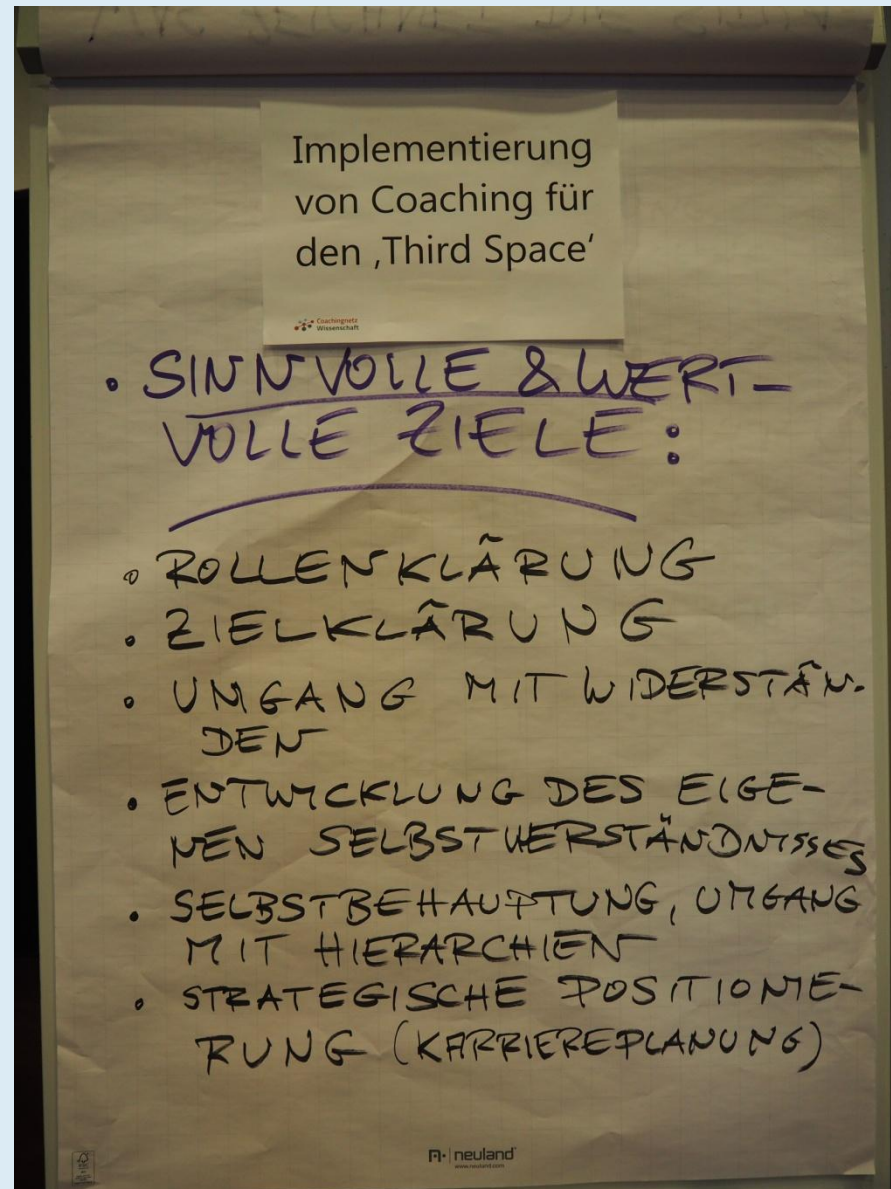 Implementierung
von Coaching für
den ‚Third Space‘
Coachingnetz
Wissenschaft
• SINNVOLLE & WERT-
VOLLE ZIELE:
• ROLLENKLÄRUNG
• ZIELKLÄRUNG
• UMGANG MIT WIDERSTÄN-
DEN
• ENTWICKLUNG DES EIGE-
NEN SELBSTVERSTÄNDNISSES
• SELBSTBEHAUPTUNG, UMGANG
MIT HIERARCHIEN
• STRATEGISCHE POSITIONIE-
RUNG (KARRIEREPLANUNG)
neuland
www.neuland.com